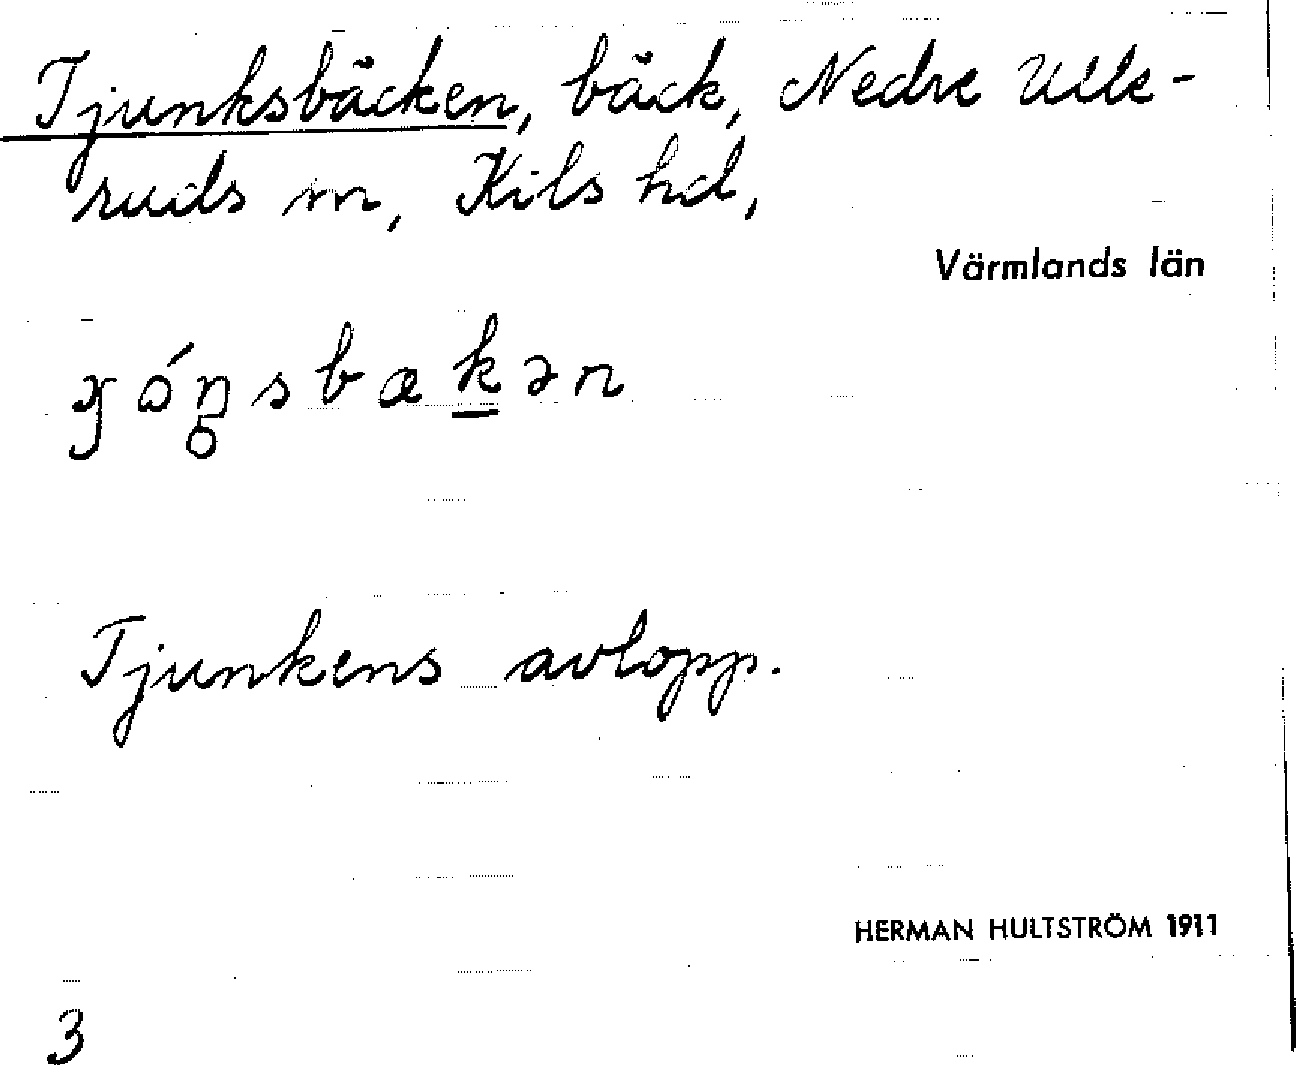 Tjunksbäcken, bäck, Nedre Ulle-
ruds m, Kils hd,
Värmlands län
Tjunkens avlopp.
HERMAN HULTSTRÖM 1911
3